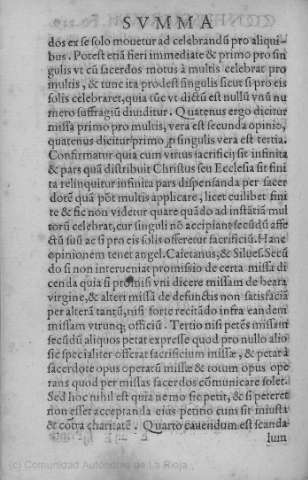 SVMMA
dos ex se solo mouetur ad celebrandũ pro aliqui-
bus. Potest etiã fieri immediate & primo pro sin
gulis vt cũ sacerdos motus à multis celebrat pro
multis, & tunc ita prodest singulis sicut si pro eis
solis celebraret, quia tũc vt dictũ est nullũ vnũ nu
mero suffragiũ diuiditur. Quatenus ergo dicitur
missa primo pro multis, vera est secunda opinio,
quatenus dicitur primo ꝓ singulis vera est tertia.
Confirmatur quia cum virtus sacrificij sit infinita
& pars quã distribuit Christus seu Ecclesia sit fini
ta relinquitur infinita pars dispensanda per sacer
dotẽ quã põt multis applicare, licet cuilibet fini
te & sic non videtur quare quãdo ad instãtiã mul
torũ celebrat, cur singuli nõ accipiant secũdũ affe
ctũ suũ ac si pro eis solis offeretur sacrificiũ. Hanc
opinionem tenet angel. Caietanus, & Silues. Secũ
do si non interueniat promissio de certa missa di
cenda quia si promisi vni dicere missam de beata
virgine, & alteri missã de defunctis non satisfaciã
per alterã tantũ, nisi forte recitãdo infra eandem
missam vtrunq; officiũ. Tertio nisi petẽs missam
secũdũ aliquos petat expresse quod pro nullo alio
sic specialiter offerat sacrificium missæ, & petat à
sacerdote opus operatũ missæ & totum opus ope
rans quod per missas sacerdos cõmunicare solet.
Sed hoc nihil est quia nemo sic petit, & si peteret
non esset acceptanda eius petitio cum sit iniusta
& cõtra charitatẽ. Quarto cauendum est scanda
lum
(c) Comunidad Autónoma de La Rioja